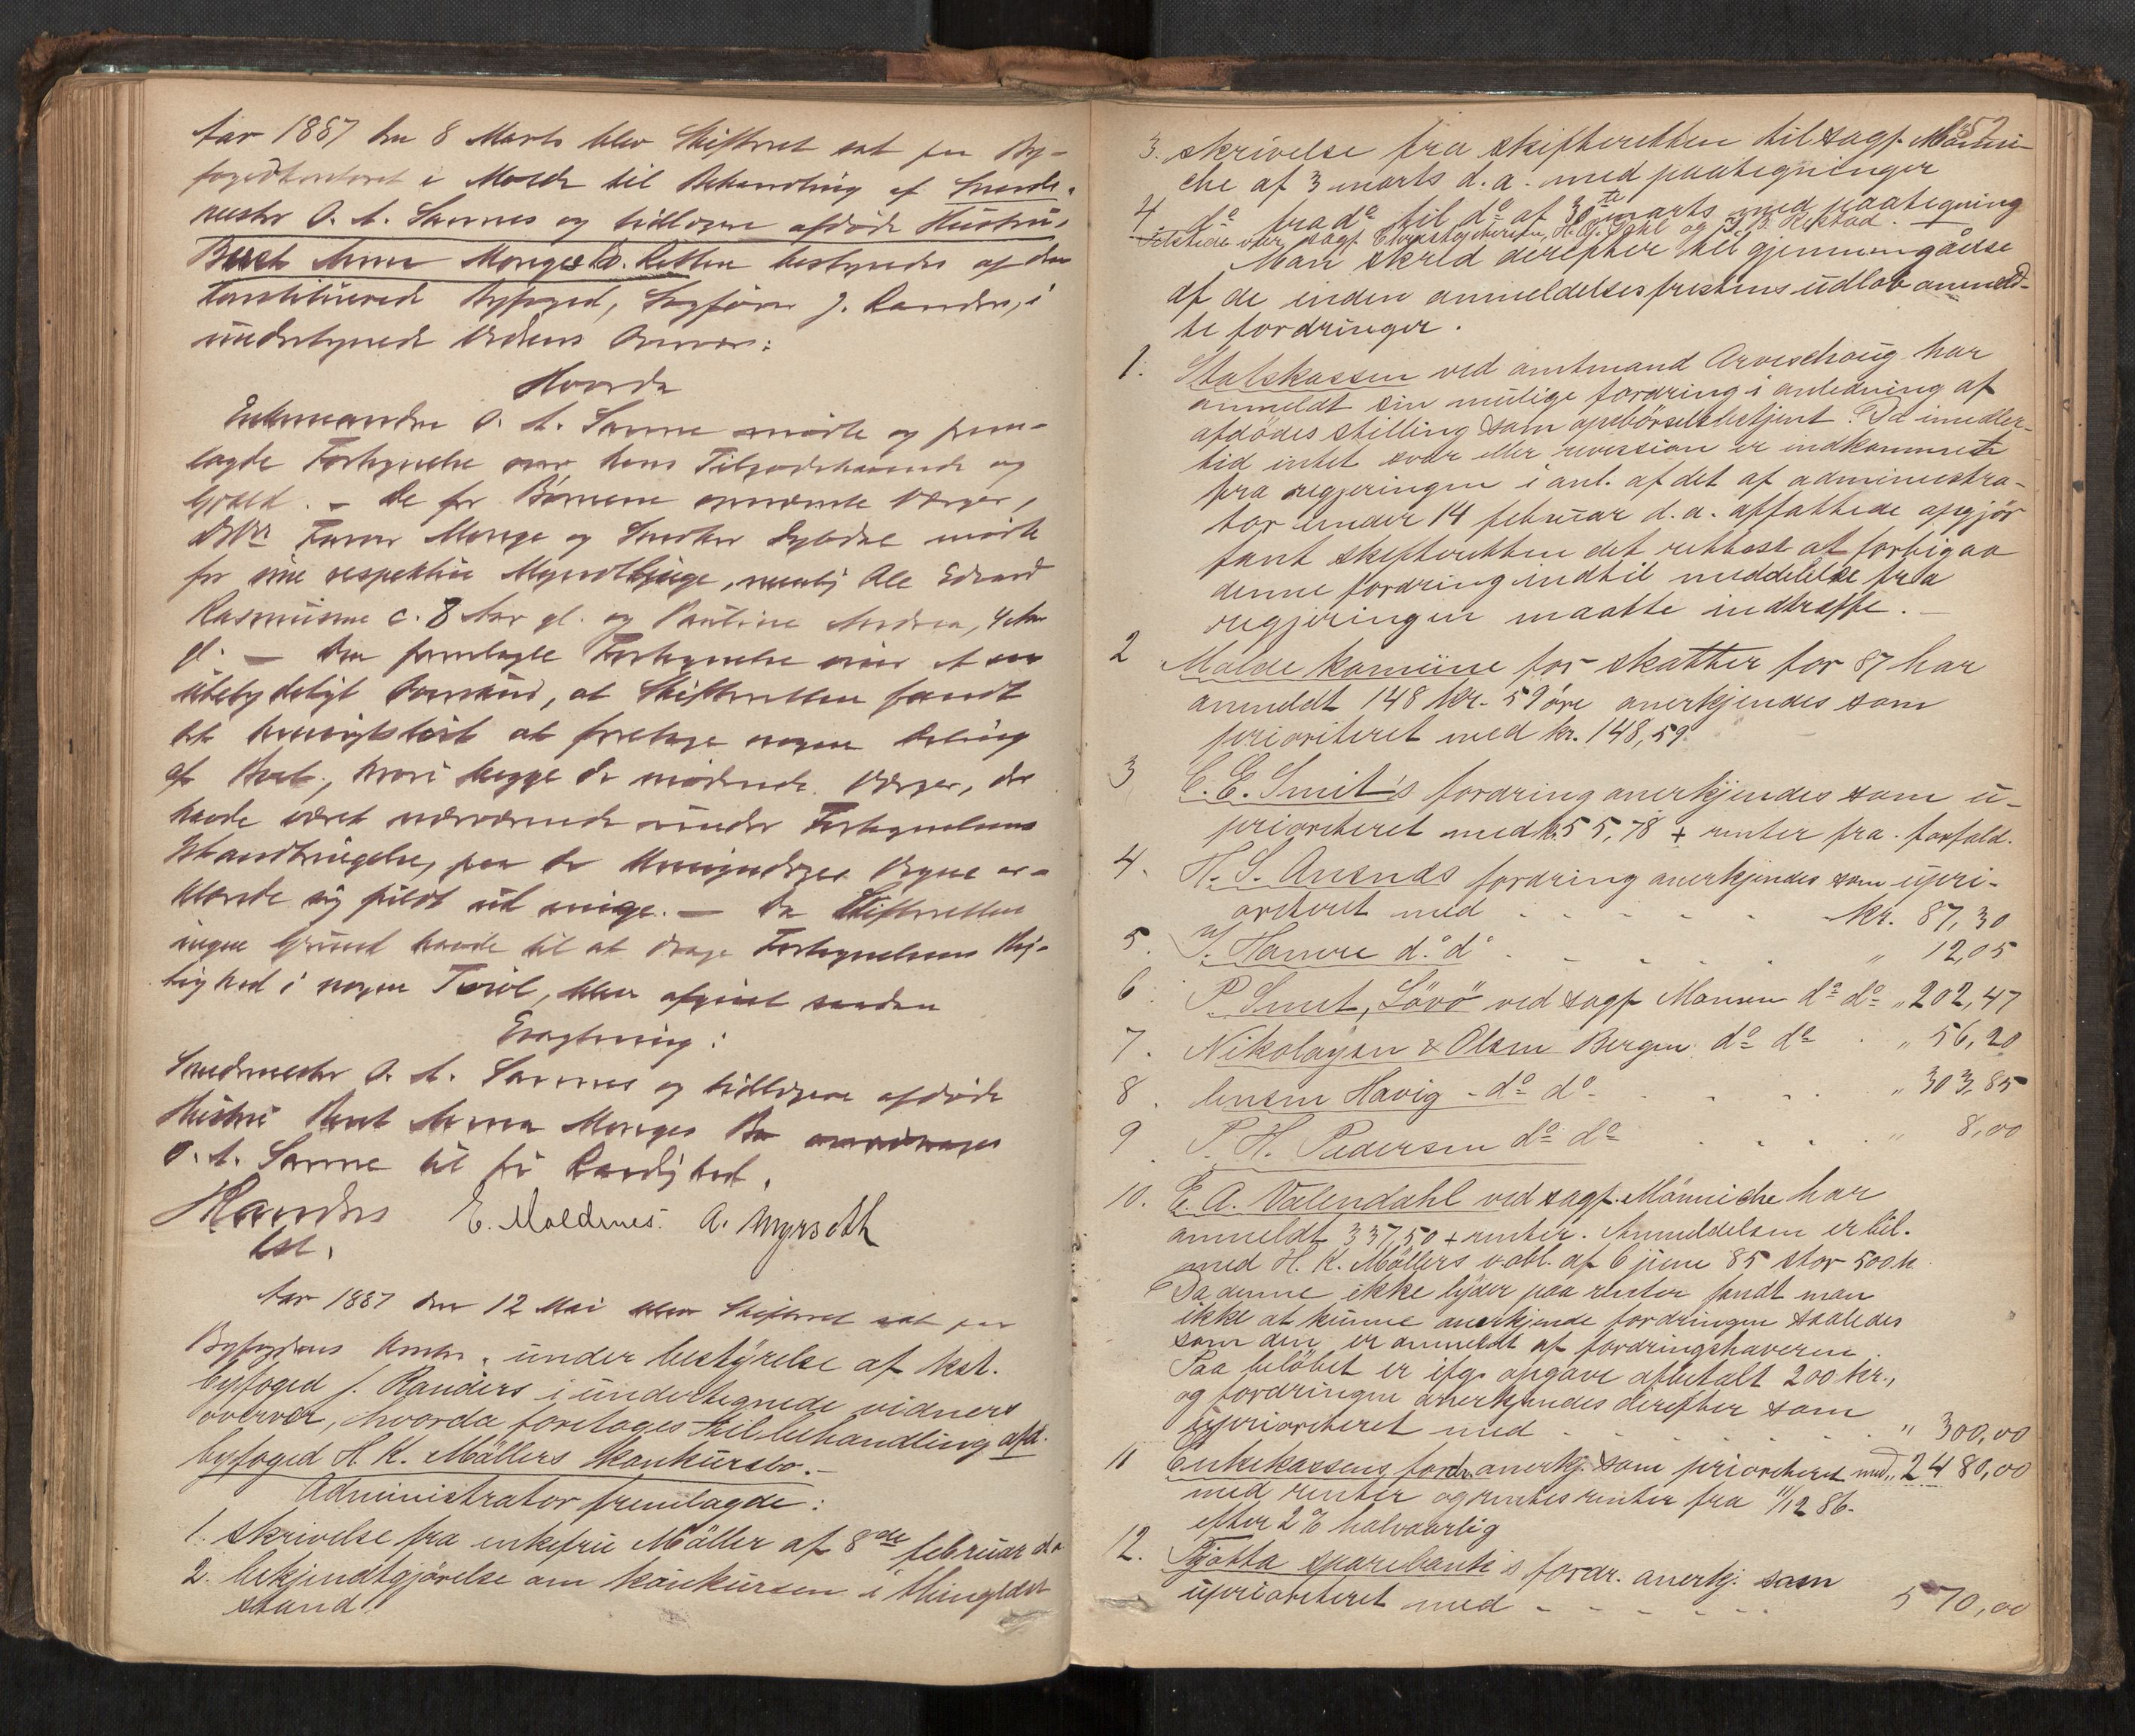 Aar 1887 den 8 Marts blev Skifteret sat paa By-
fogedkontoret i Molde til Behandling af Smede-
mester O. A. Sannes og tidligere afdøde Hustru
Beret Anna Monges Bo. Retten bestyredes af den
konstituerede Byfoged, Sagfører J. Randers, i
undertegnede Vidners Overvær:
Hvorda
Enkemanden O. A. Sanne mødte og frem-
lagde Fortegnelse over hans Tilgodehavende og
Gjæld. - De for Børnene opnævnte Værger,
Monge og Snedker mødte
for sine respektive Myndlinge, nemlig Ole Edvard
Rasmus c. 8 Aar gl. og Pauline Andrea, 4 Aar
gl. - Den fremlagte Fortegnelse viser et saa
ubetydeligt Overskud, at Skifteretten fandt
det hensigtsløst at foretage nogen Deling
af Boet, hvori begge de mødende Værger, der
havde været nærværende under Fortegnelsens
Istandbringelse, paa de Umyndiges Vegne er-
klærede sig fuldt ud enige. - Da Skifteretten
ingen Grund havde til at drage Fortegnelsens Rig-
tighed i nogen Tvivl, blev afgivet saadan
Eragtning:
Smedemester O. A. Sannes og tidligere afdøde
Hustru Beret Anna Monges Bo overdrages
O. A. Sanne til fri Raadighed.
JRanders E. Moldenes. A. Myrseth
kst.
Aar 1887 den 12 Mai blev Skifteret sat paa
Byfogdens Kontor, under bestyrelse af kst.
byfoged J. Randers i undertegnede vidners
overvær, hvorda foretoges til behandling afd.
byfoged H. K. Møllers konkursbo.-
Administrator fremlagde:
1. skrivelse fra enkefru Møller af 8de februar d.a
2. bekjendtgjørelse om konkursen i thinglæst
stand
52
3. skrivelse fra skifteretten til sagf. Mønni-
che af 3 marts d.a. med paategninger
4 do fra do til do af 30te marts med paategning
Tilstede var sagf. H. O. Dahl og
Man skred derefter til gjennemgåelse
af de inden anmeldelsesfristens udløb anmeld-
te fordringer.
1. Statskassen ved amtmand Arveschoug har
anmeldt sin mulige fordring i anledning af
afdødes stilling som opebørselsbetjent. Da imidler-
tid intet svar eller revission er indkommet
fra regjeringen i anl. af det af administra-
tor under 14 februar d.a. affattede opgjør
fant skifteretten det rettest at forbigaa
denne fordring indtil meddelelse fra
regjeringen maatte indtræffe. -
2 Molde komune for skatter for 87 har
anmeldt 148 kr. 59 øre anerkjendes som
prioriteret med kr. 148,59
3 C. E. Smit's fordring anerkjendes som u-
prioriteret med k. 55,78 + renter fra forfald.
4. H. S. Ansnæs fordring anerkjendes som upri-
oriteret med - - - - - kr. 87,30
5. J. Hanvre do do - - - - - " 12,05
6. P. Smit, Løvø ved sagf Mønni do do " 202,47
7. Nikolaysen & Olsen Bergen do do . " 56,20
8. Jensen Havig - do do - - - - " 303,85
9. P. H. Pedersen do do . . . . " 8,00
10. E. A. Valendahl ved sagf. Mønniche har
anmeldt 337,50 + renter. Anmeldelsen er bil.
med H. K. Møllers v.obl. af 6 june 85 stor 500 k
Da denne ikke lyder paa renter fandt man
ikke at kunne anerkjende fordringen saaledes
som den er anmeldt af fordringshaveren.
Paa beløbet er ifg. opgave afbetalt 200 kr.,
og fordringen anerkjendes derefter som
uprioriteret med - - - - - " 300,00
11 Enkekassens fordr. anerkj. som prioriteret med " 2480,00
med renter og rentesrenter fra 11/12 86.
efter 2 % halvaarlig
12. Tjøtta sparebank's fordr. anerkj. som
uprioriteret med - - - - - - 570,00